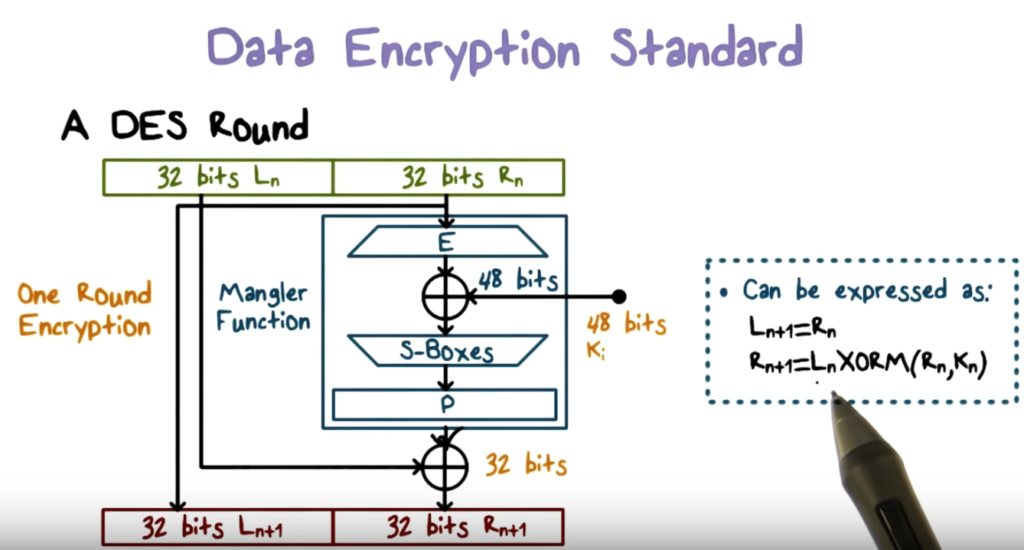 Data Encryption Standard
A DES Round
32 bits Ln
32 bits Rn
E
48 bits
One Round
Encryption
Mangler
Function
48 bits
Ki
S-Boxes
P
32 bits
32 bits Ln+1
32 bits Rn+1
• Can be expressed as:
Ln+1=Rn
Rn+1=LnXORM(Rn,Kn)